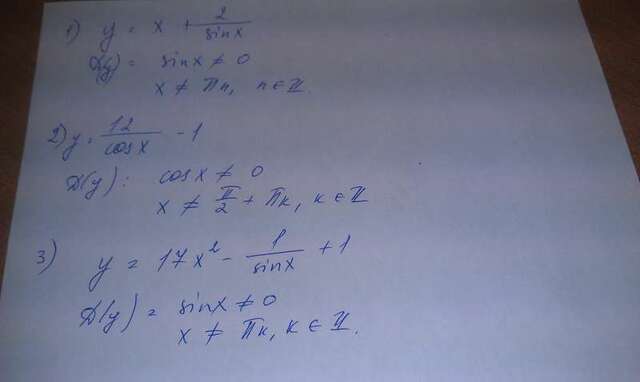 1) y = x + 2/sin x
D(y) = sin x ≠ 0
x ≠ πn, n ∈ Z.
2) y = 12/cos x - 1
D(y): cos x ≠ 0
x ≠ π/2 + πk, k ∈ Z
3) y = 17x² - 1/sin x + 1
D(y) = sin x ≠ 0
x ≠ πk, k ∈ Z.